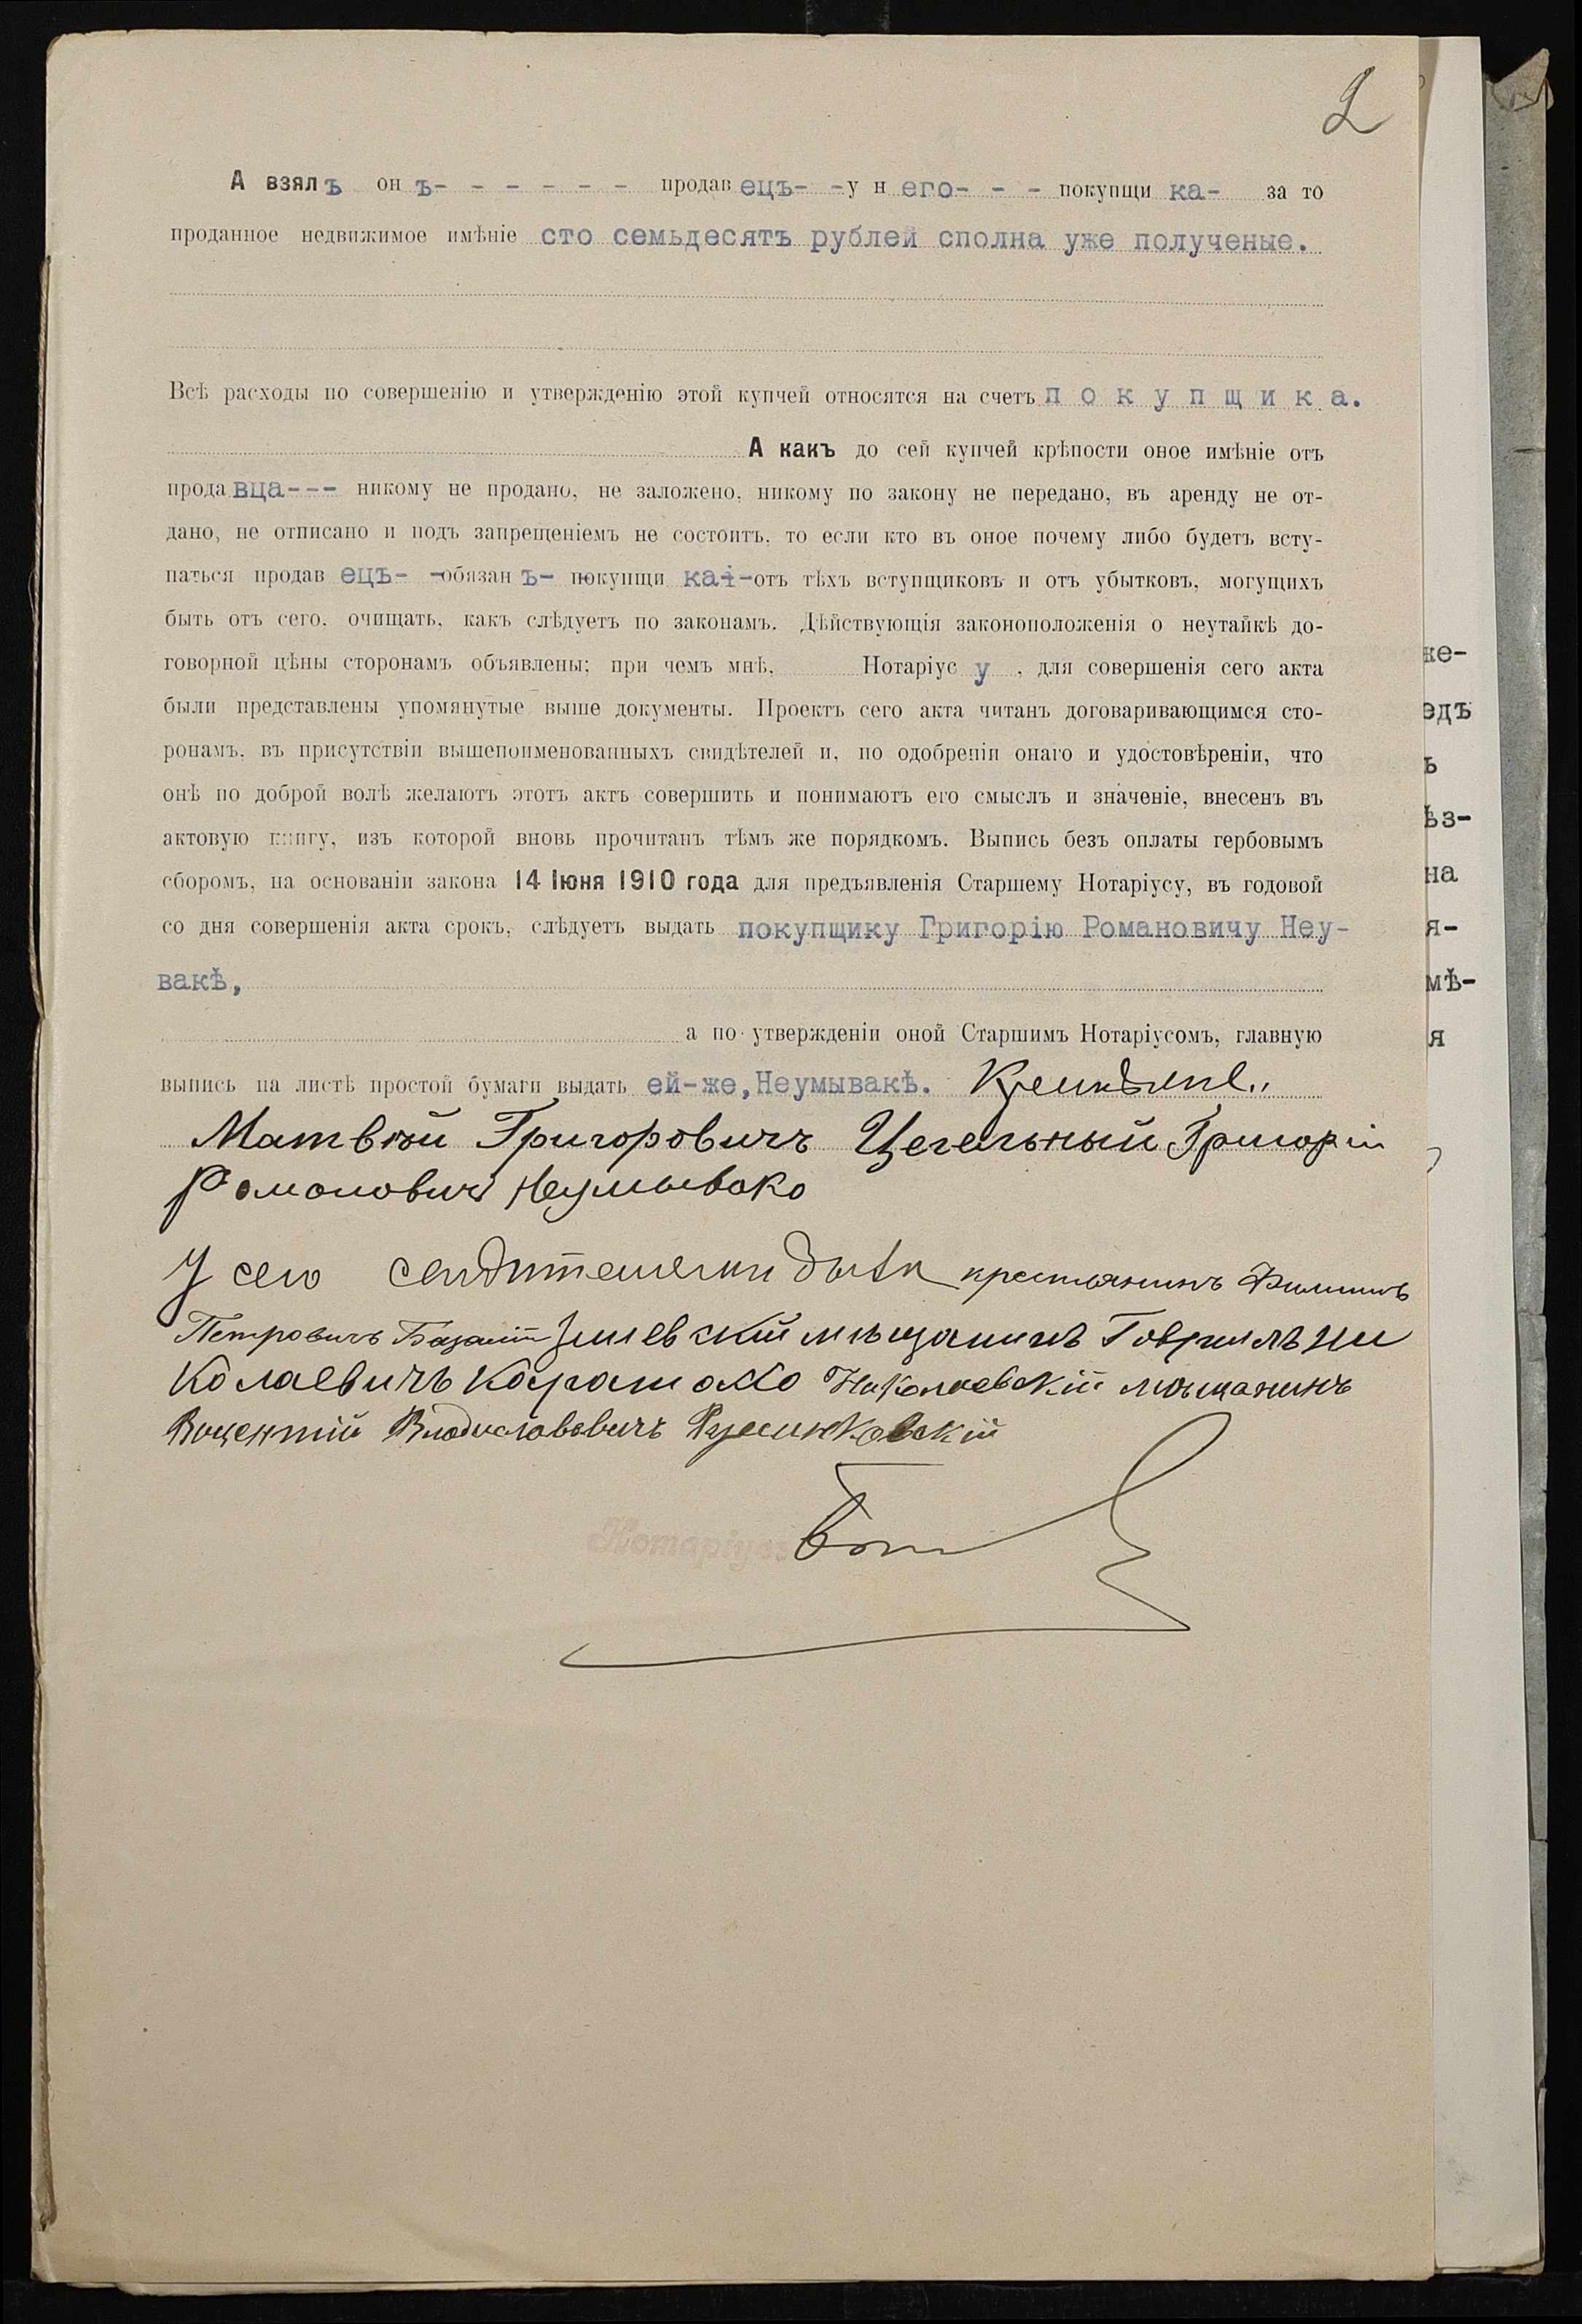 2
А взялъ онъ- - - - - - - продавецъ- -у него- - - покупщика- за то
проданное недвижимое имѣніе сто семьдесятъ рублей сполна уже полученые.
Всѣ расходы по совершенію и утвержденію этой купчей относятся на счетъ покупщика.
А какъ до сей купчей крѣпости оное имѣніе отъ
продавца--- никому не продано, не заложено, никому по закону не передано, въ аренду не от-
дано, не отписано и подъ запрещеніемъ не состоитъ, то если кто въ оное почему либо будетъ всту-
паться продавецъ- -обязанъ- покупщика-отъ тѣхъ вступщиковъ и отъ убытковъ, могущихъ
быть отъ сего, очищать, какъ слѣдуетъ по законамъ. Дѣйствующія законоположенія о неутайкѣ до-
говорной цѣны сторонамъ объявлены; при чемъ мнѣ, Нотаріусу, для совершенія сего акта
были представлены упомянутые выше документы. Проектъ сего акта читанъ договаривающимся сто-
ронамъ, въ присутствіи вышепоименованныхъ свидѣтелей и, по одобреніи онаго и удостовѣреніи, что
онѣ по доброй волѣ желаютъ этотъ актъ совершить и понимаютъ его смыслъ и значеніе, внесенъ въ
актовую книгу, изъ которой вновь прочитанъ тѣмъ же порядкомъ. Выпись безъ оплаты гербовымъ
сборомъ, на основаніи закона 14 Іюня 1910 года для предъявленія Старшему Нотаріусу, въ годовой
со дня совершенія акта срокъ, слѣдуетъ выдать покупщику Григорію Романовичу Неу-
вакѣ,
а по утвержденіи оной Старшимъ Нотаріусомъ, главную
выпись на листѣ простой бумаги выдать ей-же, Неумывакѣ.
Матвѣй Григоровичъ Цегельный Григорій
Романовичъ Неумывако
У сего свидѣтелями были крестьянинъ Филиппъ
Петровичъ мѣщанинъ Гавриилъ Ни
колаевичъ Николаевскій мѣщанинъ
Викентій Владиславовичъ
Нотаріусъ
же-
эдъ
ъ
ѣз-
на
я-
мѣ-
я